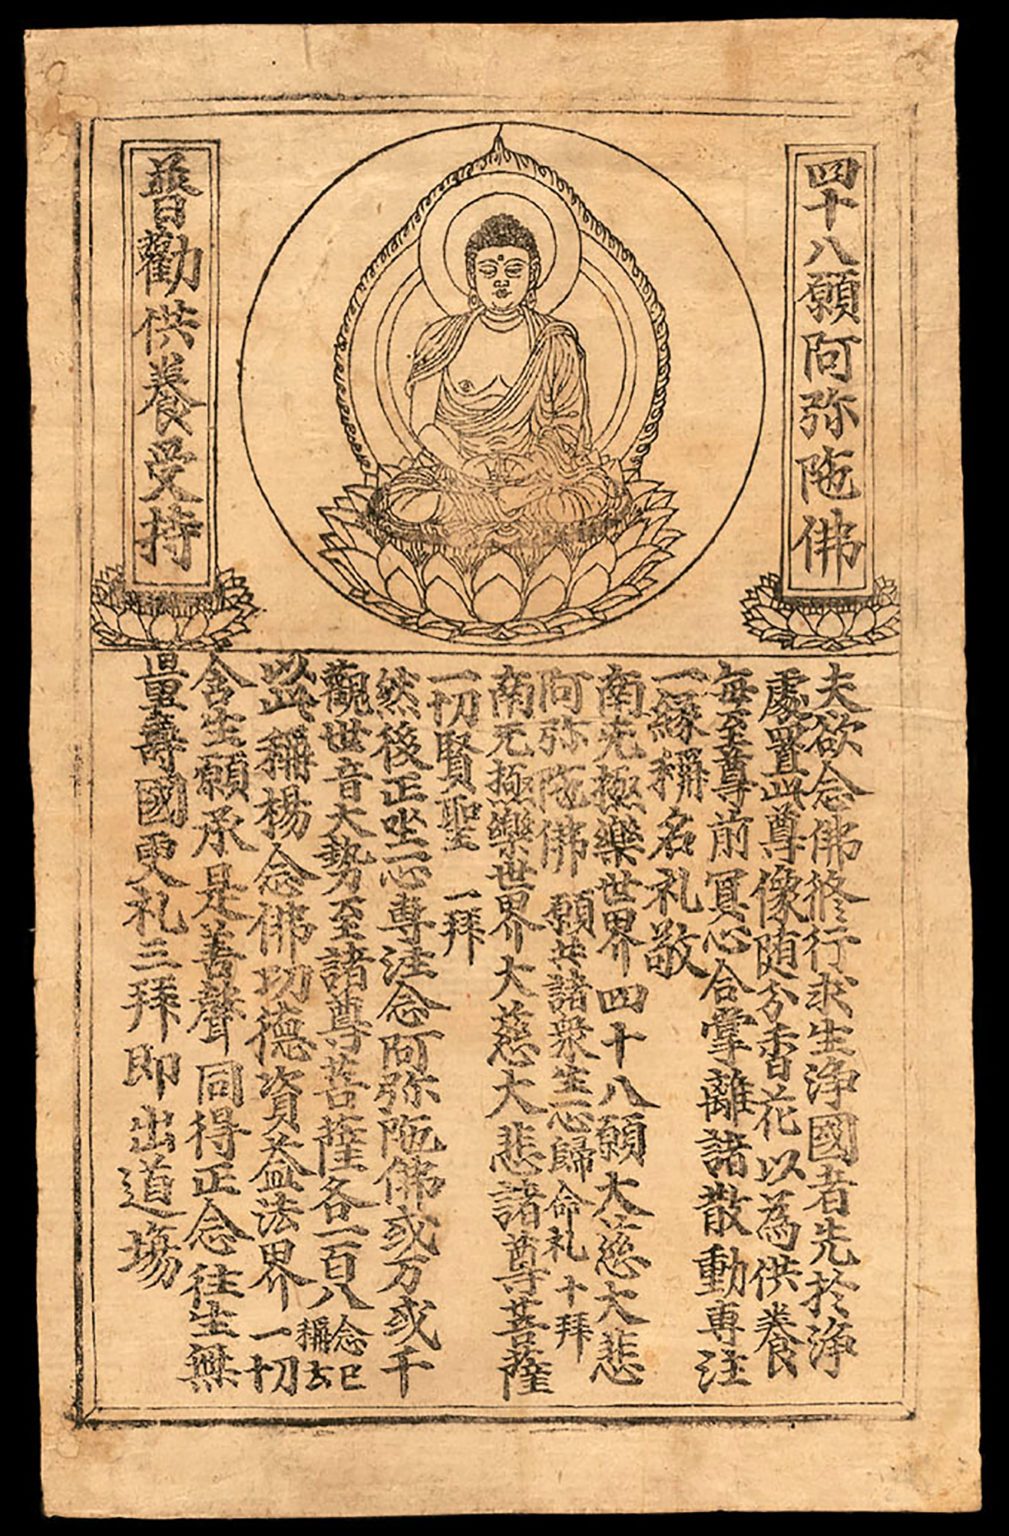 四十八願阿弥陁佛
普勸供養受持
夫欲念佛修行求生浄國者先於浄
處置此尊像随分香花以為供養
每至尊前冥心合掌離諸散動専注
一緣稱名礼敬
南无極樂世界四十八願大慈大悲
阿弥陁佛 願共諸衆生一心歸命礼 十拜
南无極樂世界大慈大悲諸尊菩薩
一切賢聖 一拜
然後正坐一心専注念阿弥陁佛或万或千
觀世音大勢至諸尊菩薩各一百八 念已稱云
以此稱揚念佛功德資益法界一切
含生願承是善聲同得正念往生無
量壽國更礼三拜即出道場